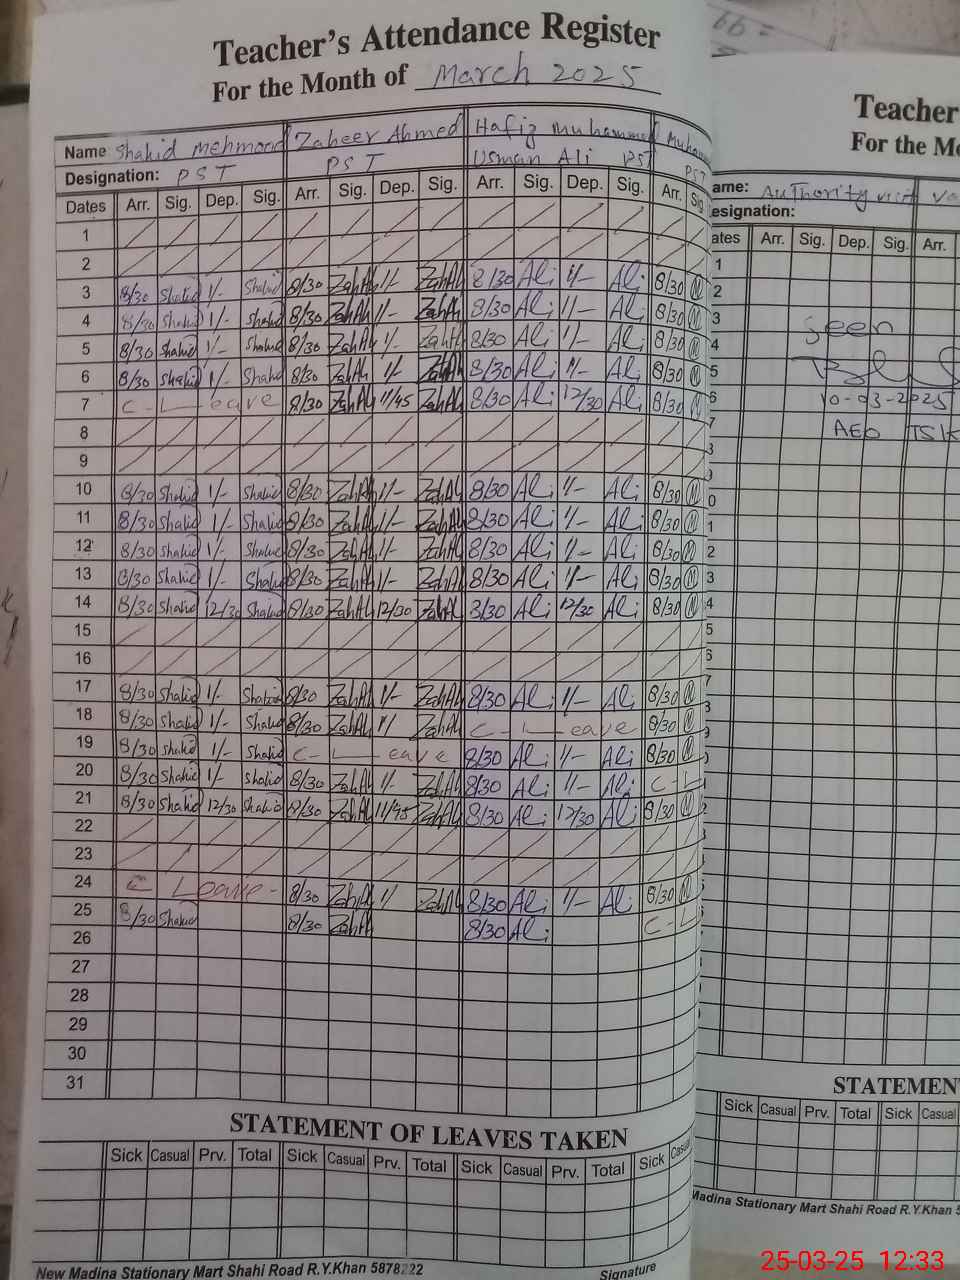 Teacher's Attendance Register
For the Month of March 2025
Name Shahid Mehmood Zaheer Ahmed Hafiz Muhammad
Usman Ali PST
Designation: PST PST PST
Dates Arr. Sig. Dep. Sig. Arr. Sig. Dep. Sig. Arr. Sig. Dep. Sig. Arr. Sig
1
2
3 8/30 Shahid 1/- Shahid 8/30 ZahAh 1/- ZahAh 8/30 Ali 1/- Ali 8/30
4 8/30 Shahid 1/- Shahid 8/30 ZahAh 1/- ZahAh 8/30 Ali 1/- Ali 8/30
5 8/30 Shahid 1/- Shahid 8/30 ZahAh 1/- ZahAh 8/30 Ali 1/- Ali 8/30
6 8/30 Shahid 1/- Shahid 8/30 ZahAh 1/- ZahAh 8/30 Ali 1/- Ali 8/30
7 C-Leave 8/30 ZahAh 11/45 ZahAh 8/30 Ali 12/30 Ali 8/30
8
9
10 8/30 Shahid 1/- Shahid 8/30 ZahAh 1/- ZahAh 8/30 Ali 1/- Ali 8/30
11 8/30 Shahid 1/- Shahid 8/30 ZahAh 1/- ZahAh 8/30 Ali 1/- Ali 8/30
12 8/30 Shahid 1/- Shahid 8/30 ZahAh 1/- ZahAh 8/30 Ali 1/- Ali 8/30
13 8/30 Shahid 1/- Shahid 8/30 ZahAh 1/- ZahAh 8/30 Ali 1/- Ali 8/30
14 8/30 Shahid 12/30 Shahid 8/30 ZahAh 12/30 ZahAh 8/30 Ali 12/30 Ali 8/30
15
16
17 8/30 Shahid 1/- Shahid 8/30 ZahAh 1/- ZahAh 8/30 Ali 1/- Ali 8/30
18 8/30 Shahid 1/- Shahid 8/30 ZahAh 1/ ZahAh C-Leave 8/30
19 8/30 Shahid 1/- Shahid C-Leave 8/30 Ali 1/- Ali 8/30
20 8/30 Shahid 1/- Shahid 8/30 ZahAh 1/- ZahAh 8/30 Ali 1/- Ali C-L
21 8/30 Shahid 12/30 Shahid 8/30 ZahAh 11/45 ZahAh 8/30 Ali 12/30 Ali 8/30
22
23
24 C Leave- 8/30 ZahAh 1/- ZahAh 8/30 Ali 1/- Ali 8/30
25 8/30 Shahid 8/30 ZahAh 8/30 Ali C-L
26
27
28
29
30
31
STATEMENT OF LEAVES TAKEN
Sick Casual Prv. Total Sick Casual Prv. Total Sick Casual Prv. Total Sick Casual
New Madina Stationary Mart Shahi Road R.Y.Khan 5878222 Signature
Teacher
For the Mo
ame: Authority visit
esignation:
ates Arr. Sig. Dep. Sig. Arr.
Seen
10-03-2025
AEO TSK
STATEMEN
Sick Casual Prv. Total Sick Casual
Madina Stationary Mart Shahi Road R.Y.Khan 5
25-03-25 12:33